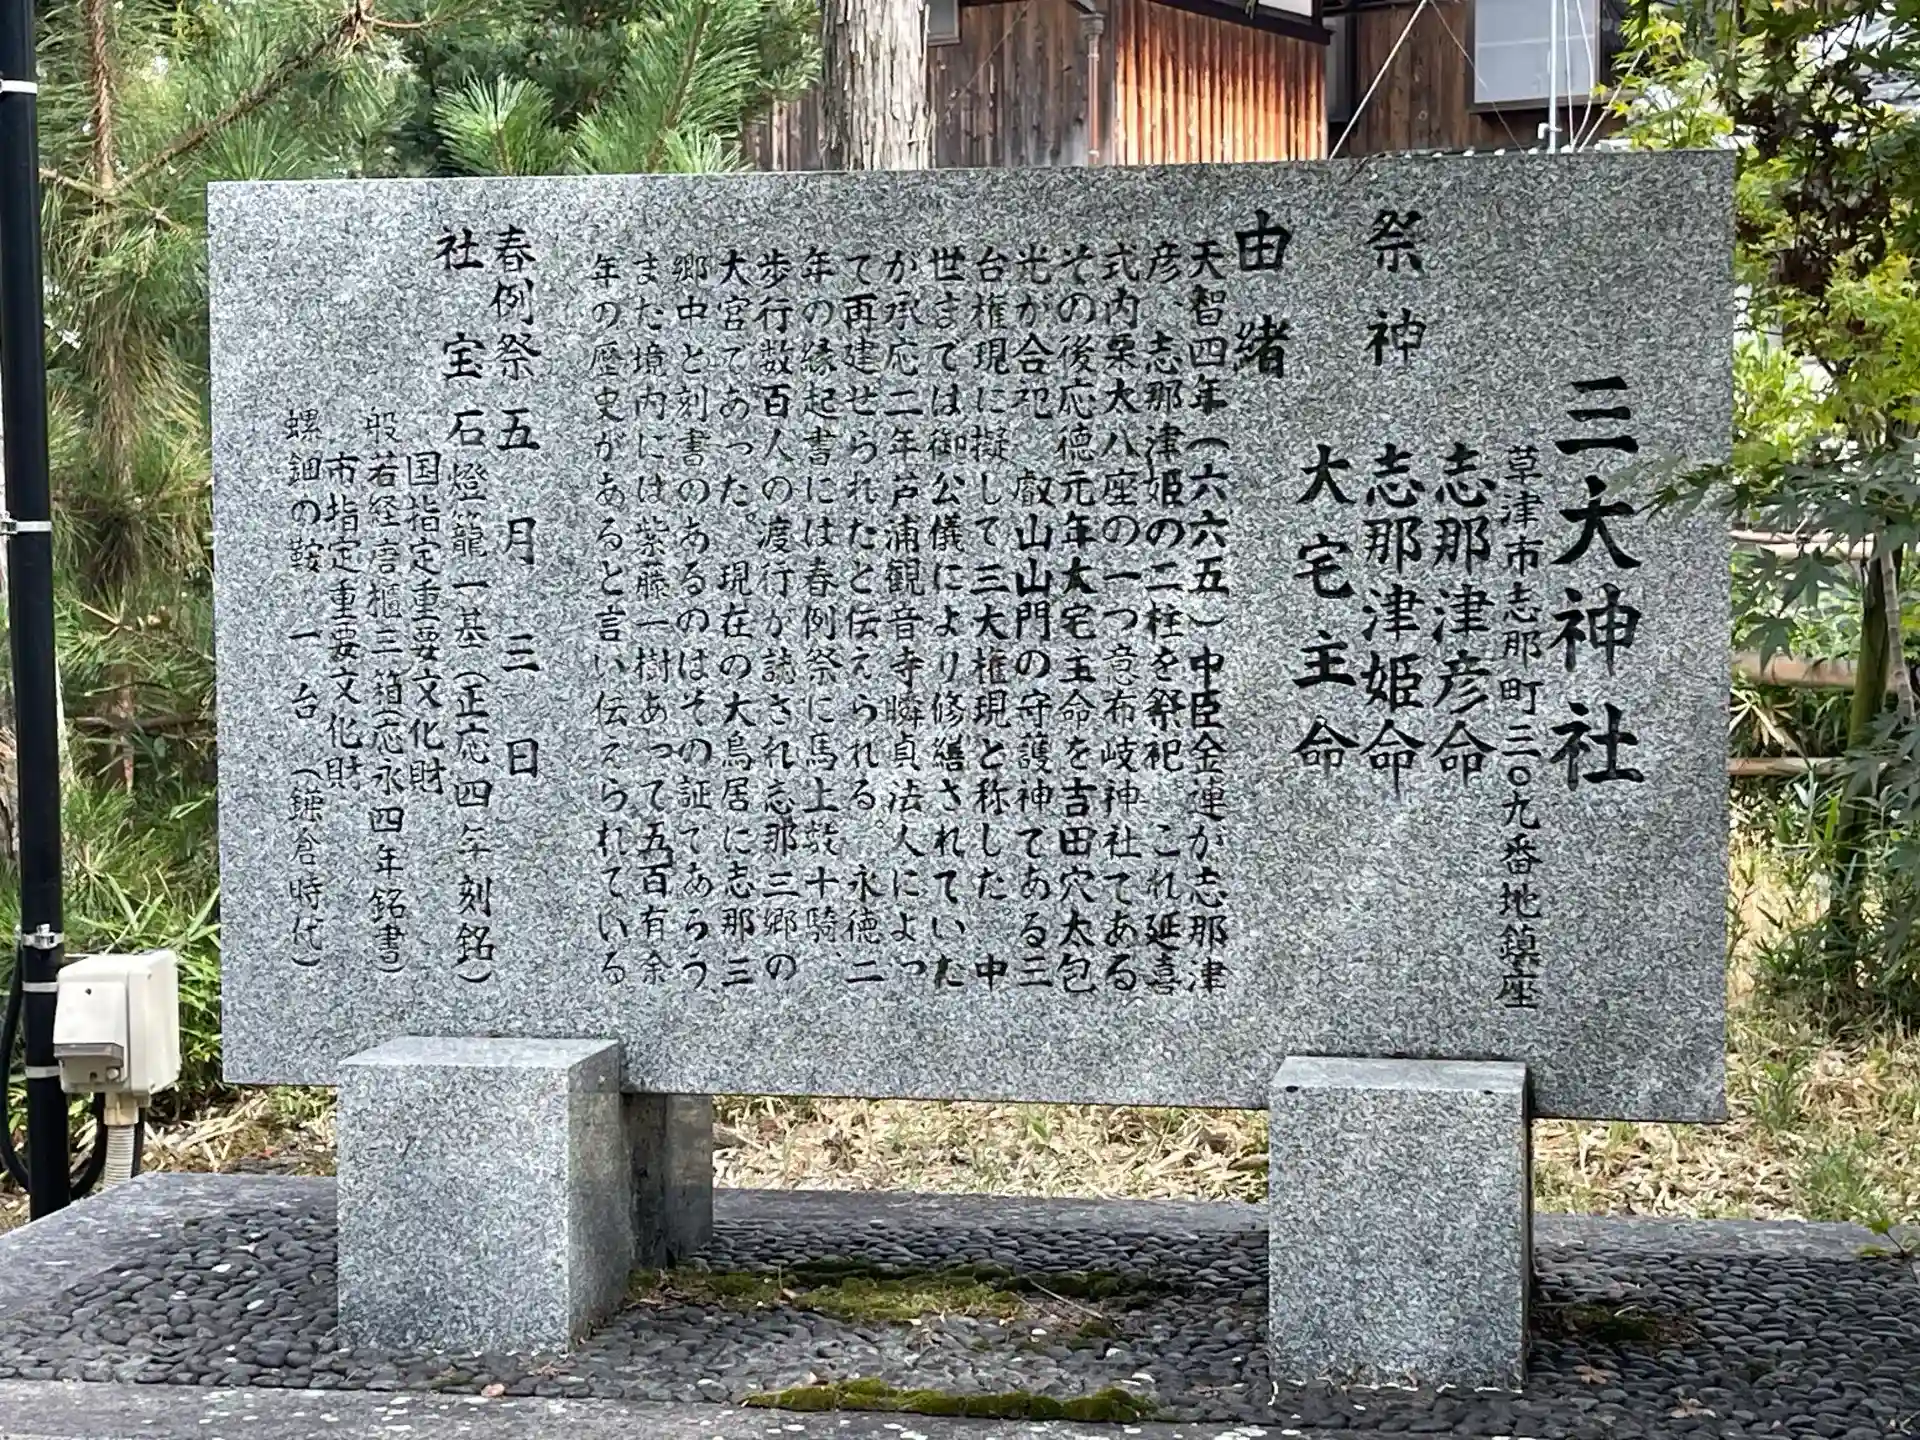 三大神社
草津市志那町三〇九番地鎮座
祭神
志那津彦命
志那津姫命
大宅主命
由緒
天智四年（六六五）中臣金連が志那津
彦、志那津姫の二柱を祭祀。これ延喜
式内栗太八座の一つ意布岐神社てある
その後応徳元年大宅主命を吉田穴太包
光が合祀 叡山山門の守護神てある三
台権現に擬して三大権現と称した。中
世までは御公儀により修繕されていた
が承応二年芦浦観音寺瞬貞法人によっ
て再建せられたと伝えられる。永徳二
年の縁起書には春例祭に馬上数十騎、
歩行数百人の渡行が誌され志那三郷の
大宮であった。現在の大鳥居に志那三
郷中と刻書のあるのはその証であらう
また境内には紫藤一樹あって五百有余
年の歴史があると言い伝えられている
春例祭 五月三日
社宝 石燈籠一基（正応四年刻銘）
国指定重要文化財
般若経唐櫃三箱（応永四年銘書）
市指定重要文化財
螺鈿の鞍 一台（鎌倉時代）